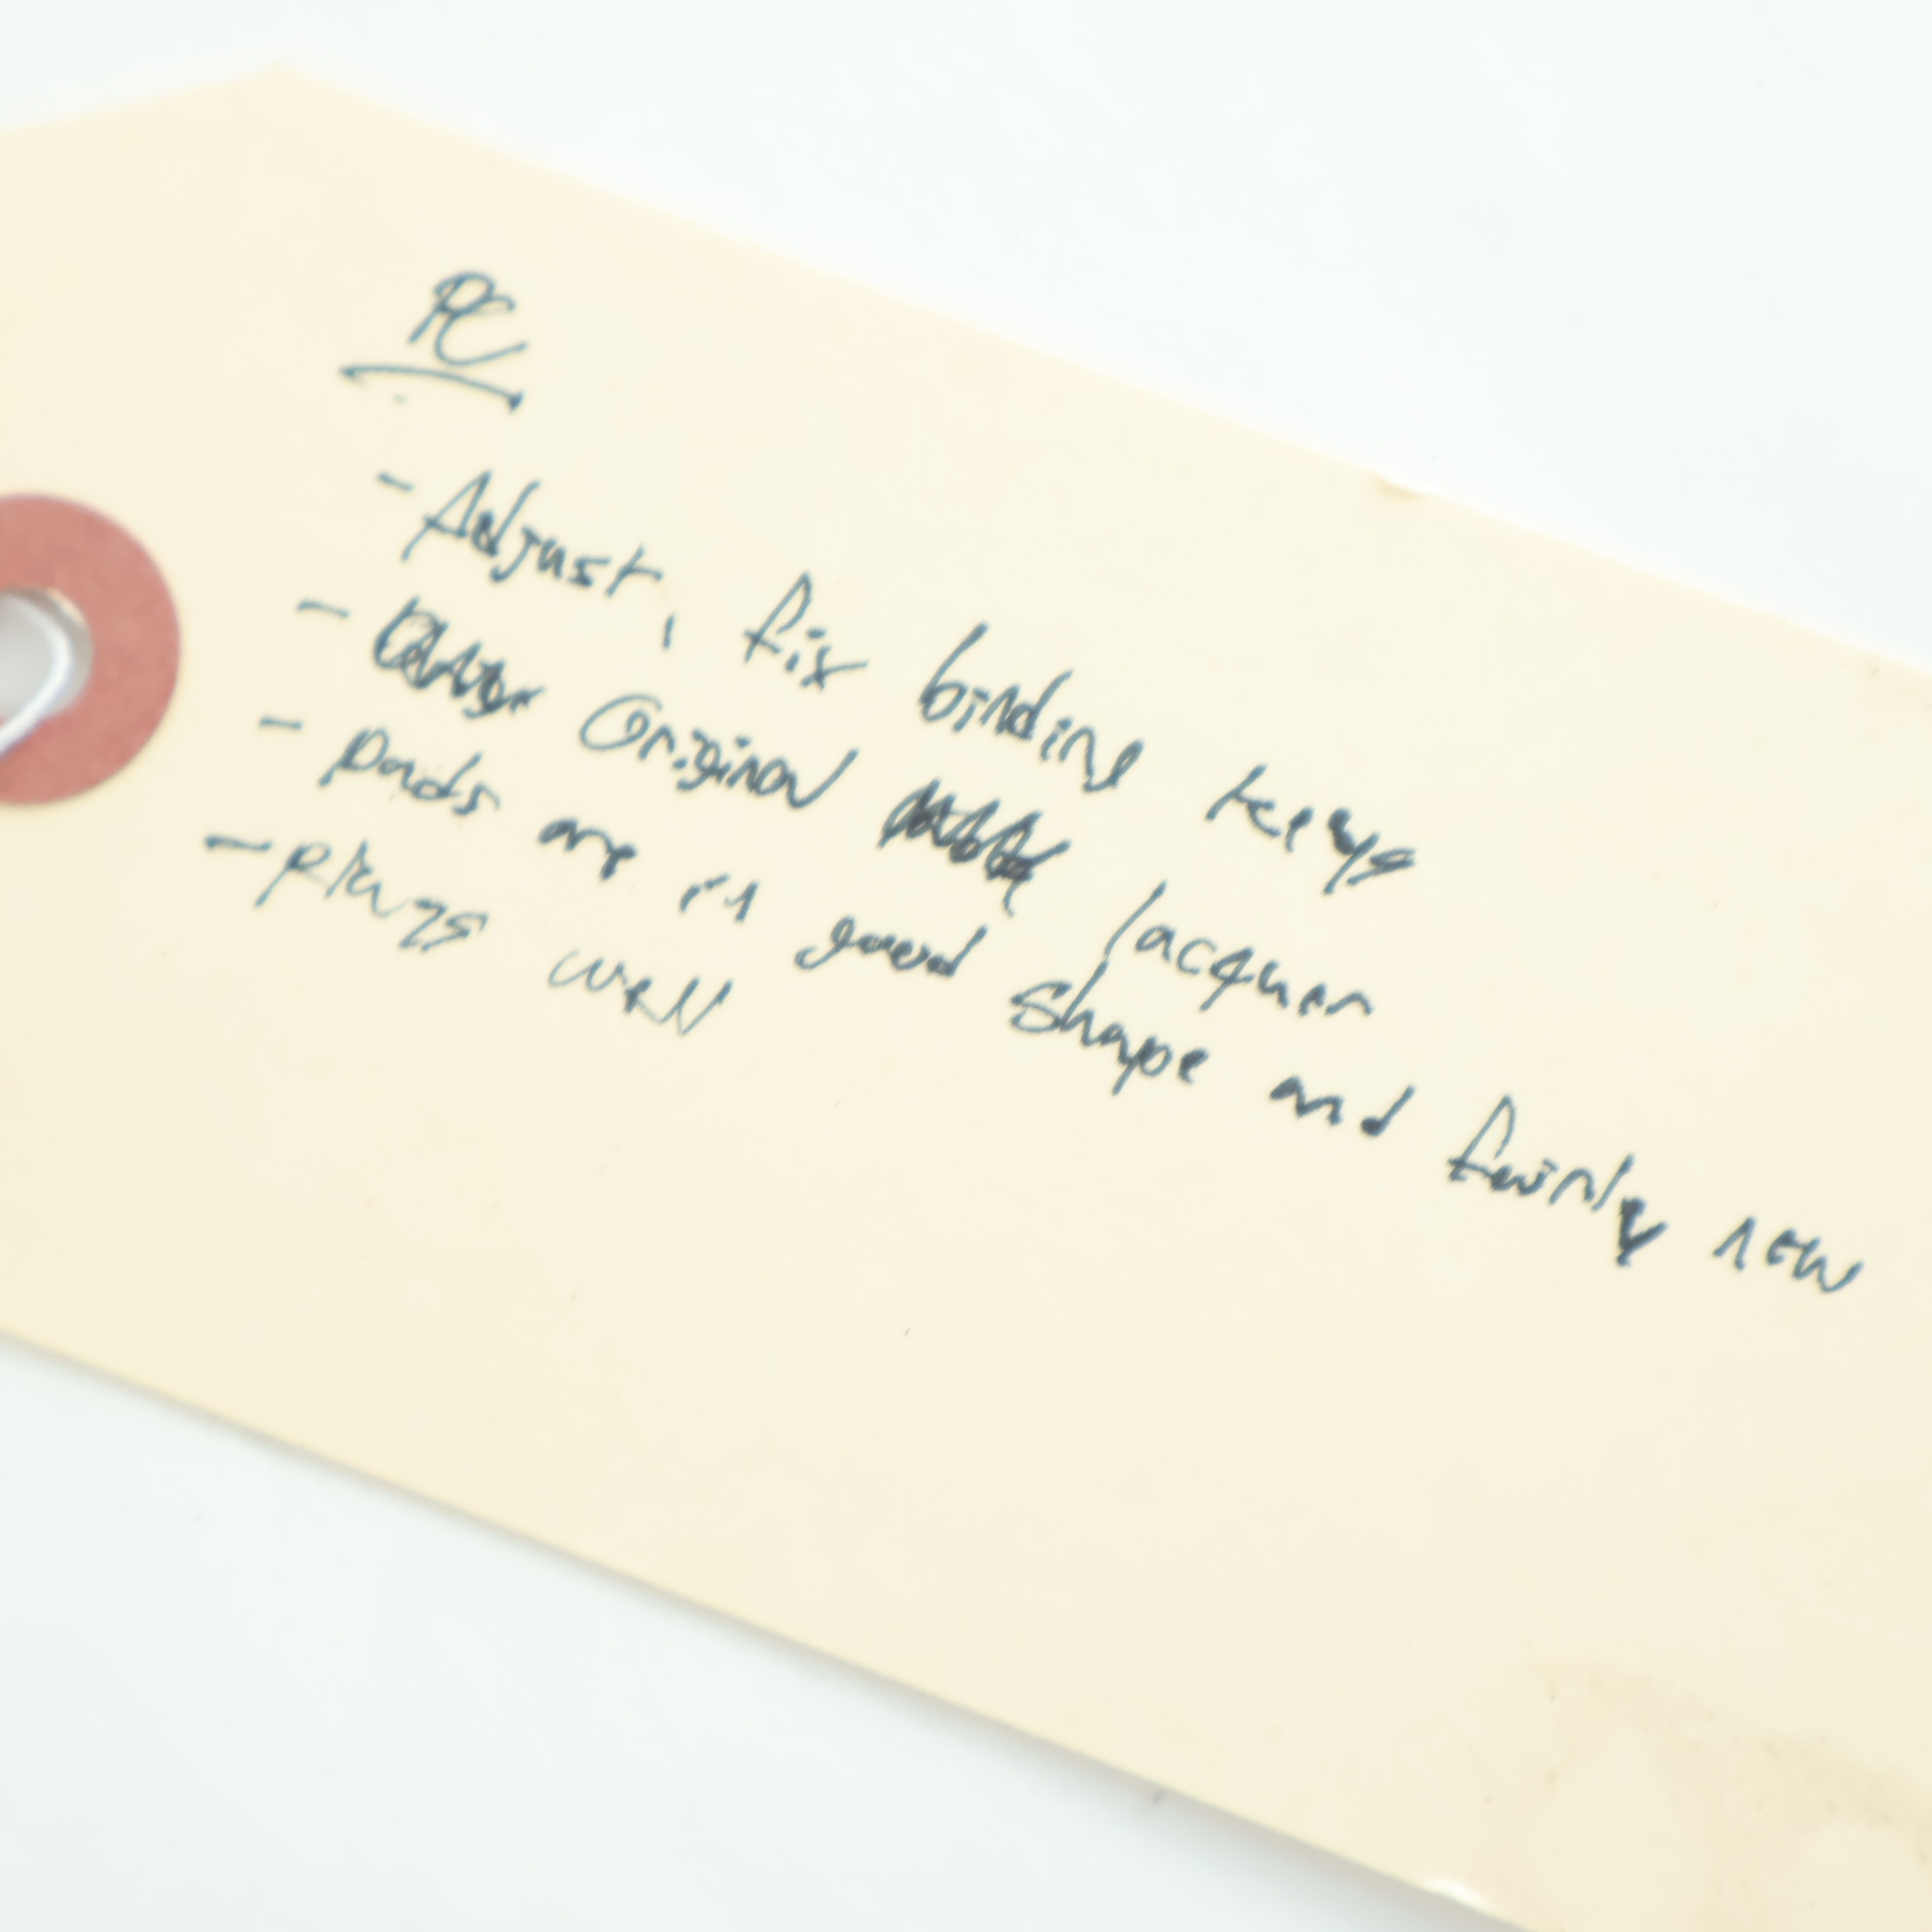 PC
- Adjust, fix binding keys
- Original lacquer
- pads are in good shape and fairly new
- plays well